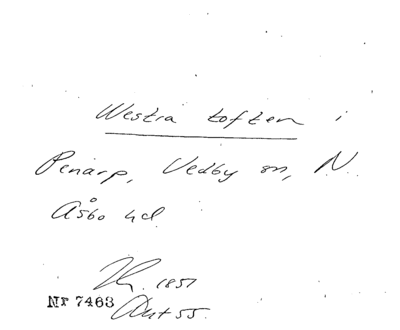 Westra toften i
Penarp, Vedby sn, N.
Åsbo hd
1851
Nr 7463
Ant 55.